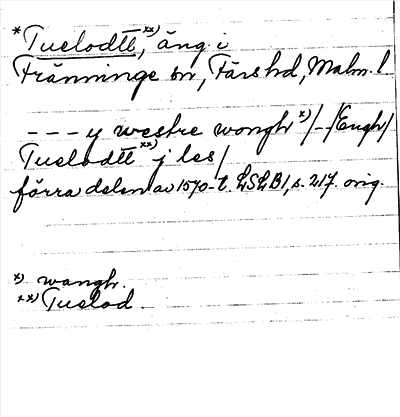 *Tuelodtt,**) äng i
Fränninge sn, Färs hd, Malm. l
--- y westre wongh *)/-/Engh/
Tuelodtt **) j les/
förra delen av 1570-t. LSLB1, s. 217. orig.
*) wangh.
**) Tuelod.